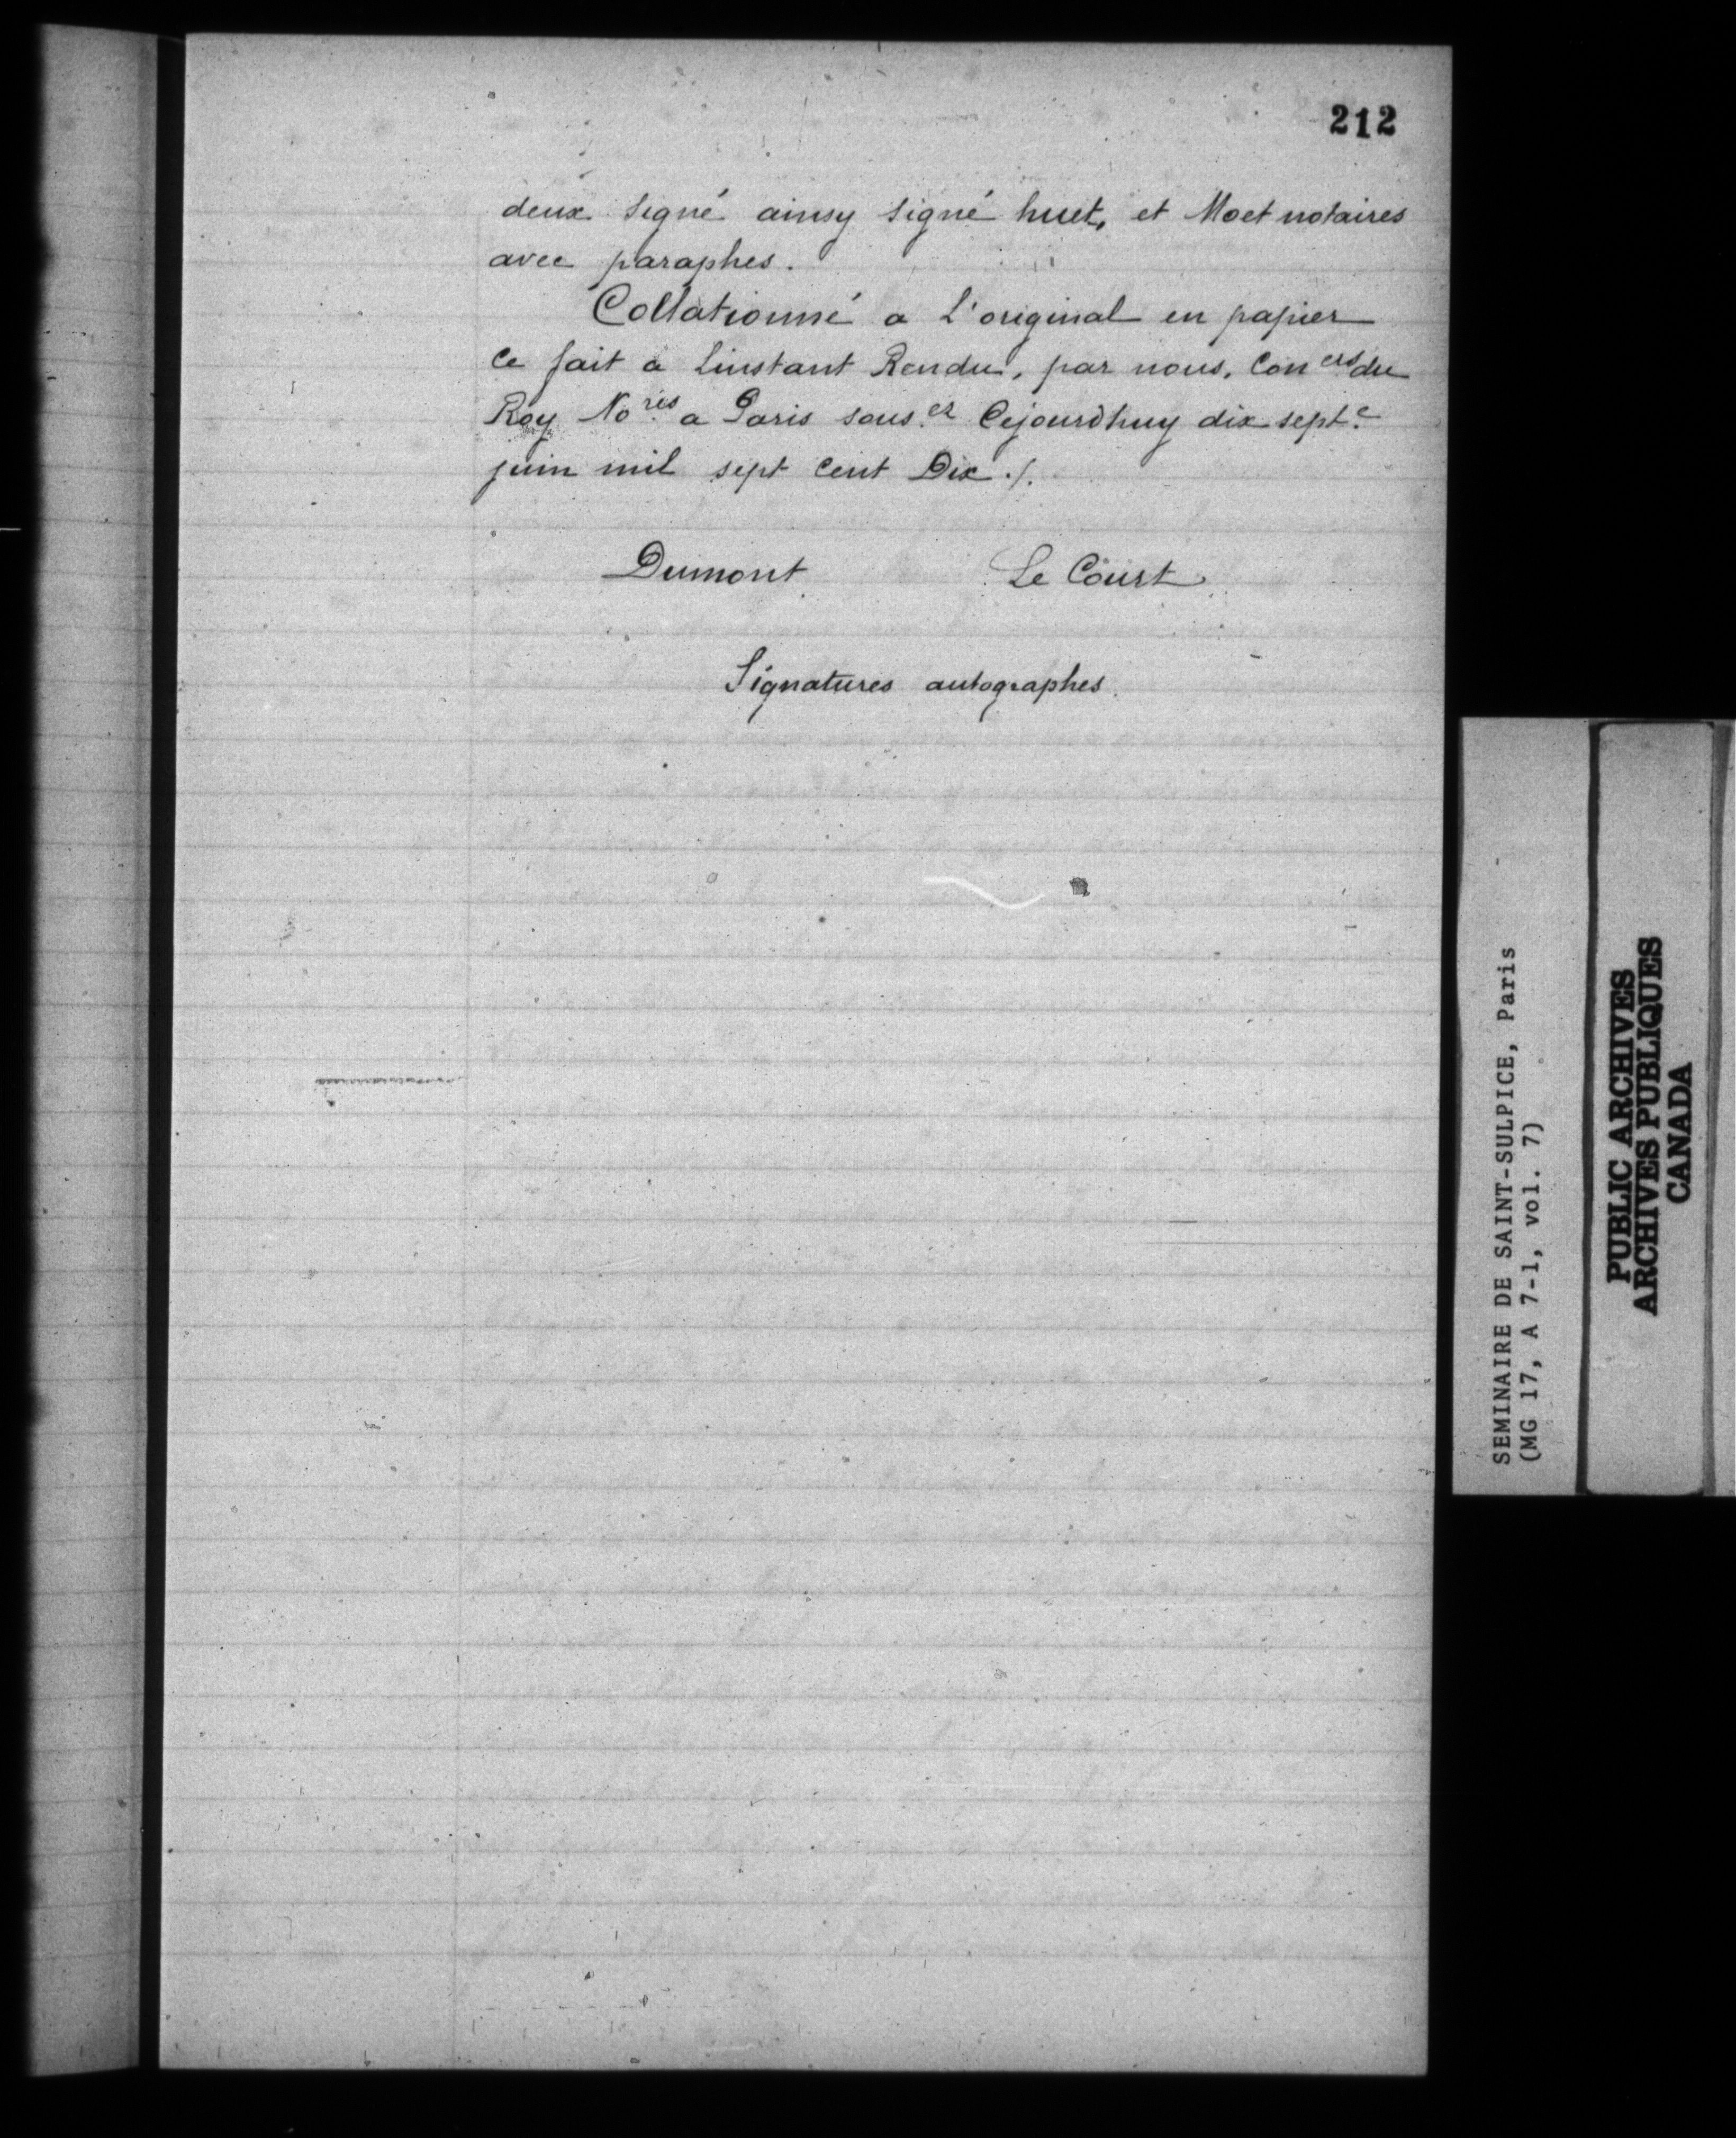 212
deux signé ainsy signé huet, et Moet notaires
avec paraphes.
Collationné a L'original en papier
Ce fait a Linstant Rendu, par nous, Con ers du
Roy No res a Paris sous. er Cejourdhuy dix sept. e
juin mil sept Cent Dix ./.
Dumont Le Court
Signatures autographes.
SEMINAIRE DE SAINT-SULPICE, Paris
(MG 17, A 7-1, vol. 7)
PUBLIC ARCHIVES
ARCHIVES PUBLIQUES
CANADA